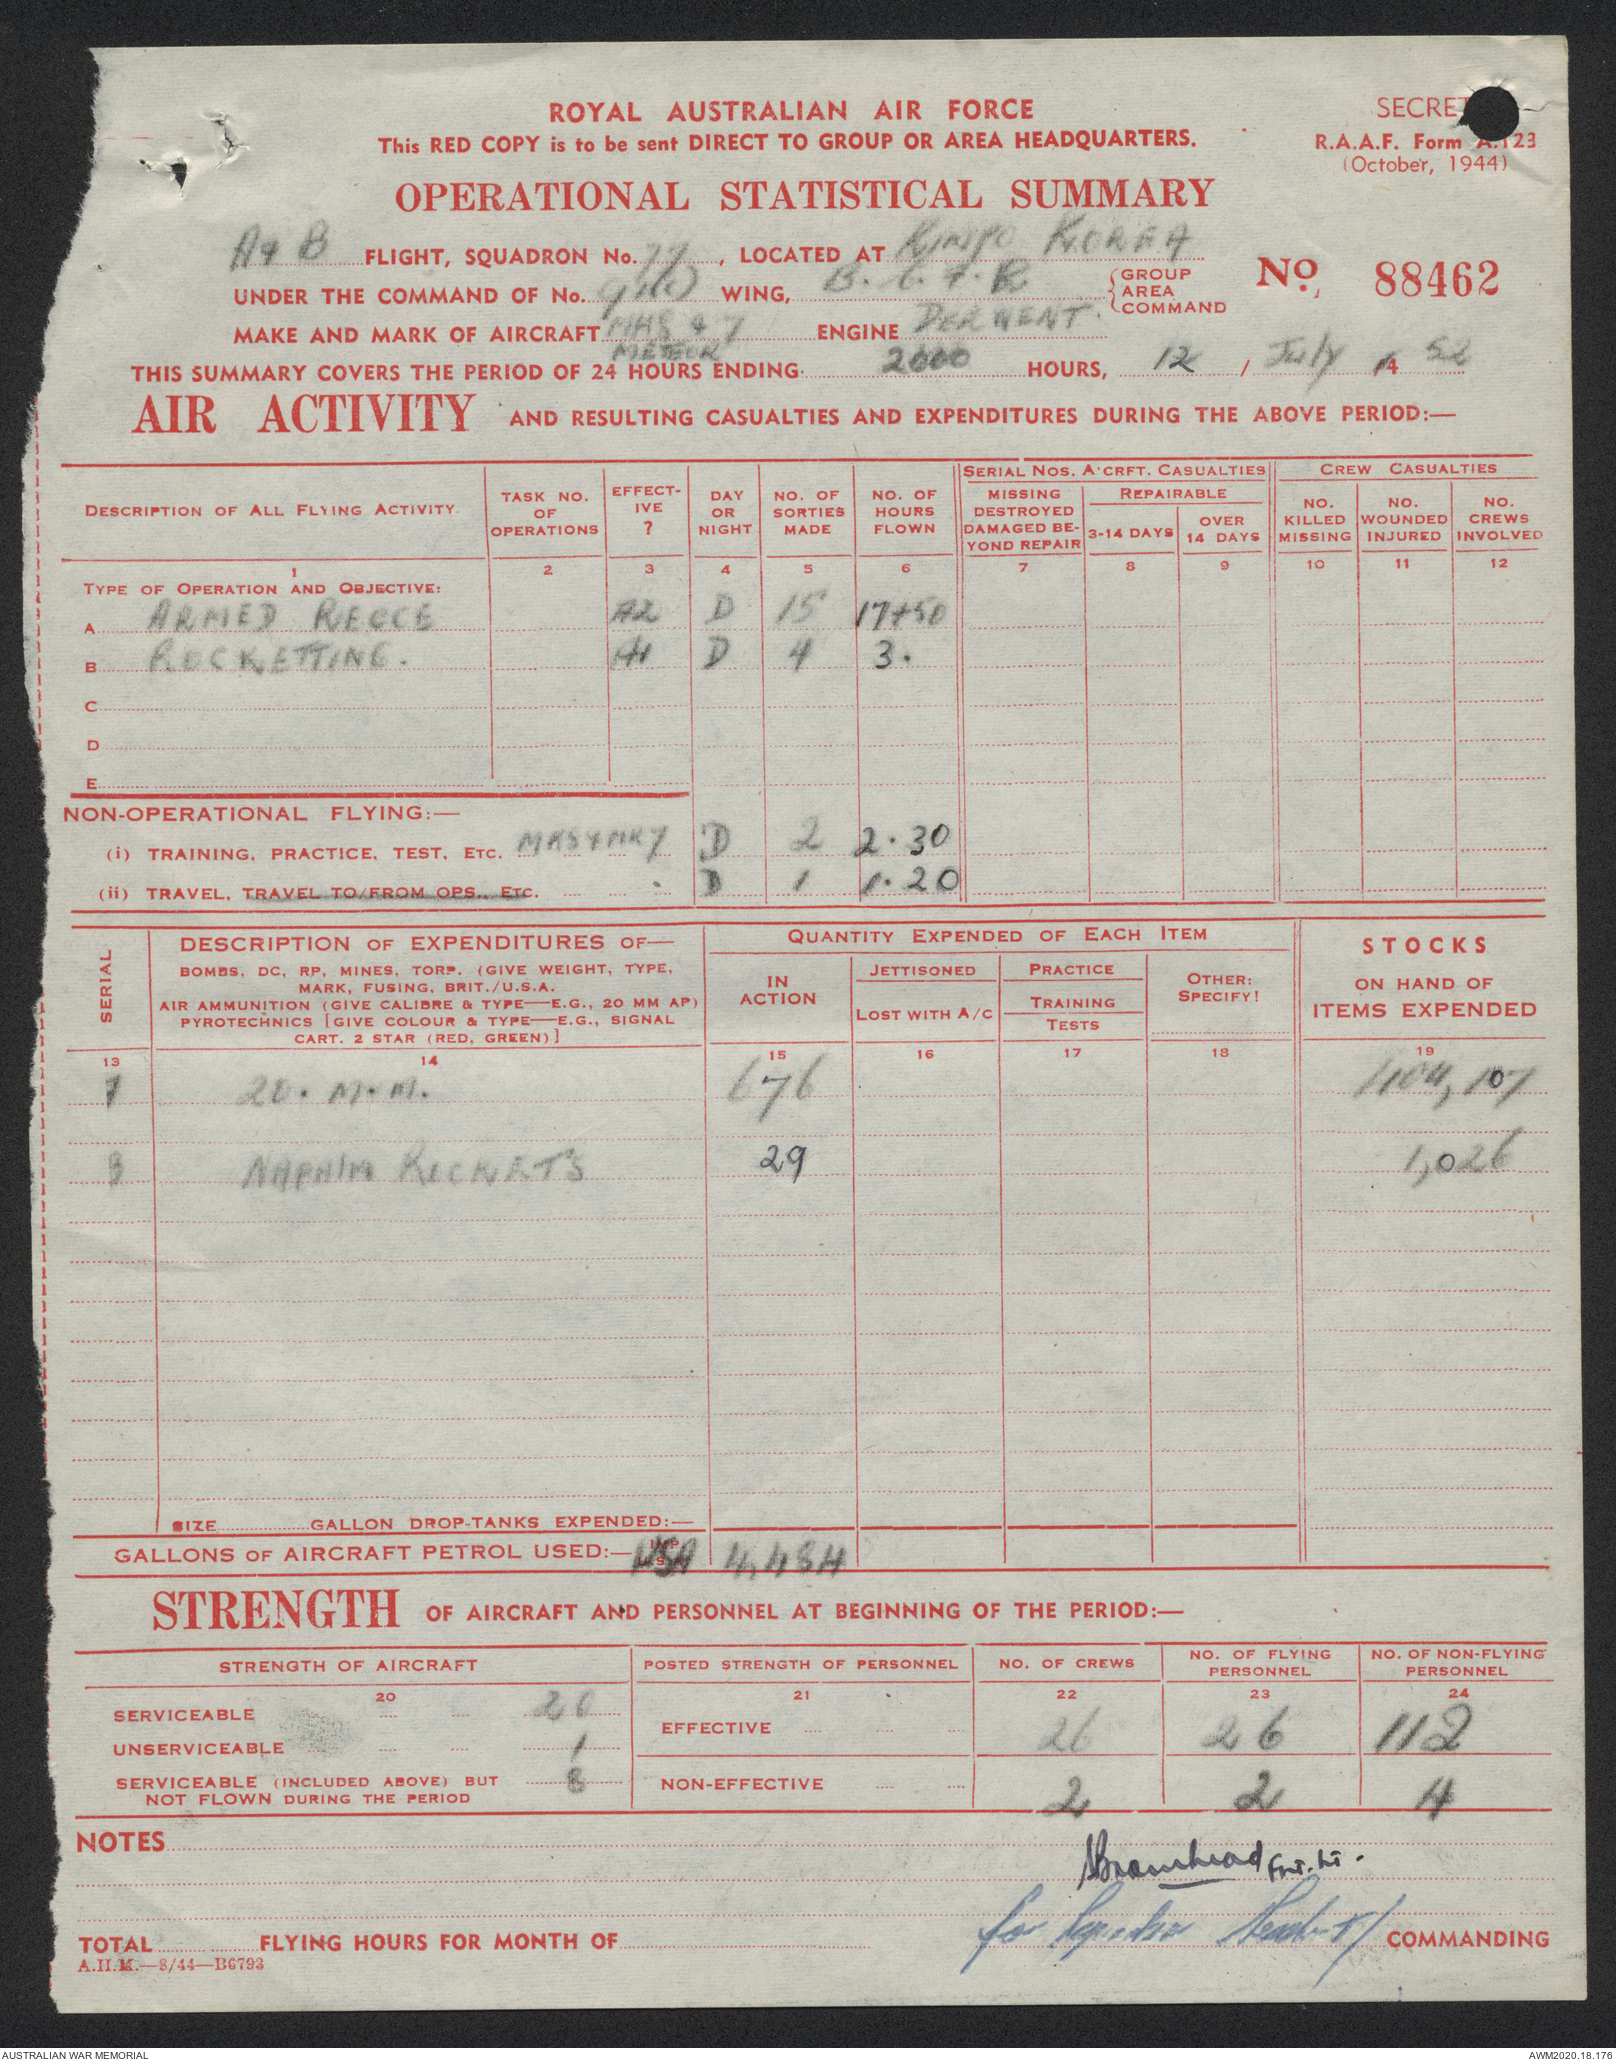 ROYAL AUSTRALIAN AIR FORCE
SECRET
This RED COPY is to be sent DIRECT TO GROUP OR AREA HEADQUARTERS.
R.A.A.F. Form A.123
(October, 1944)
OPERATIONAL STATISTICAL SUMMARY
A & B FLIGHT, SQUADRON No. 77, LOCATED AT KIMPO KOREA
UNDER THE COMMAND OF No. 91(C) WING, B.C.A.R GROUP AREA COMMAND
No. 88462
MAKE AND MARK OF AIRCRAFT MK8 & 7 METEOR ENGINE DERWENT.
THIS SUMMARY COVERS THE PERIOD OF 24 HOURS ENDING 2000 HOURS, 12 / July 52
AIR ACTIVITY AND RESULTING CASUALTIES AND EXPENDITURES DURING THE ABOVE PERIOD:—
DESCRIPTION OF ALL FLYING ACTIVITY. TASK NO. OF OPERATIONS EFFECTIVE ? DAY OR NIGHT NO. OF SORTIES MADE NO. OF HOURS FLOWN
SERIAL NOS. A'CRFT. CASUALTIES CREW CASUALTIES
MISSING DESTROYED DAMAGED BEYOND REPAIR REPAIRABLE 3-14 DAYS OVER 14 DAYS NO. KILLED MISSING NO. WOUNDED INJURED NO. CREWS INVOLVED
1 2 3 4 5 6 7 8 9 10 11 12
TYPE OF OPERATION AND OBJECTIVE:
A ARMED RECCE D 15 17+50
B ROCKETTING. D 4 3.
C
D
E
NON-OPERATIONAL FLYING:—
(i) TRAINING, PRACTICE, TEST, ETC. MK8 & MK7 D 2 2.30
(ii) TRAVEL, TRAVEL TO/FROM OPS., ETC. D 1 1.20
SERIAL
DESCRIPTION OF EXPENDITURES OF—
BOMBS, DC, RP, MINES, TORP. (GIVE WEIGHT, TYPE,
MARK, FUSING, BRIT./U.S.A.
AIR AMMUNITION (GIVE CALIBRE & TYPE—E.G., 20 MM AP)
PYROTECHNICS [GIVE COLOUR & TYPE—E.G., SIGNAL
CART. 2 STAR (RED, GREEN)]
QUANTITY EXPENDED OF EACH ITEM
IN ACTION JETTISONED LOST WITH A/C PRACTICE TRAINING TESTS OTHER: SPECIFY!
STOCKS
ON HAND OF
ITEMS EXPENDED
13 14 15 16 17 18 19
20. M.M. 676 107
NAPALM ROCKETS 29 1,026
SIZE GALLON DROP-TANKS EXPENDED:—
GALLONS OF AIRCRAFT PETROL USED:— USA 4,484
STRENGTH OF AIRCRAFT AND PERSONNEL AT BEGINNING OF THE PERIOD:—
STRENGTH OF AIRCRAFT POSTED STRENGTH OF PERSONNEL NO. OF CREWS NO. OF FLYING PERSONNEL NO. OF NON-FLYING PERSONNEL
20 21 22 23 24
SERVICEABLE 20 EFFECTIVE 26 26 112
UNSERVICEABLE 1
SERVICEABLE (INCLUDED ABOVE) BUT NOT FLOWN DURING THE PERIOD 8 NON-EFFECTIVE 2 2 4
NOTES
Bromhead Flt. Lt.
for Squadron
TOTAL FLYING HOURS FOR MONTH OF COMMANDING
A.H.M.—8/44—B6793
AUSTRALIAN WAR MEMORIAL AWM2020.18.176